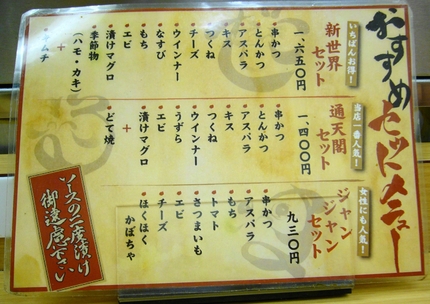 おすすめセットメニュー
いちばんお得！
新世界セット
一、六五〇円
串かつ
とんかつ
アスパラ
キス
つくね
チーズ
ウインナー
なすび
もち
エビ
漬けマグロ
季節物
（ハモ・カキ）
＋
キムチ
当店一番人気！
通天閣セット
一、四〇〇円
串かつ
とんかつ
アスパラ
キス
つくね
ウインナー
うずら
エビ
漬けマグロ
＋
どて焼
女性にも人気！
ジャンジャンセット
九三〇円
串かつ
アスパラ
もち
トマト
さつまいも
エビ
チーズ
ほくほく
かぼちゃ
ソースの二度漬け
御遠慮下さい